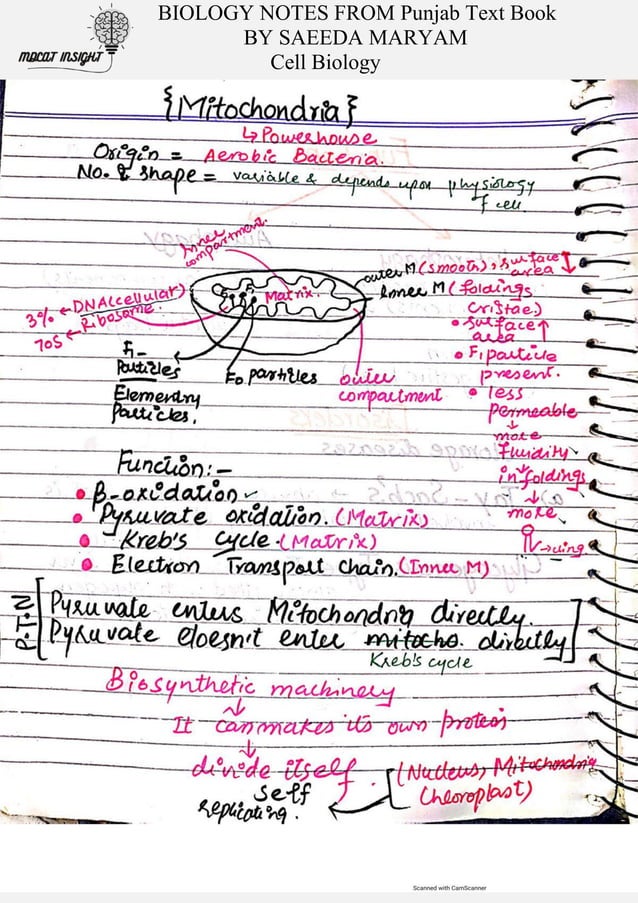 BIOLOGY NOTES FROM Punjab Text Book
BY SAEEDA MARYAM
Cell Biology
MDCAT INSIGHT
{Mitochondria}
↳ Powerhouse
Origin = Aerobic Bacteria.
No. & Shape = variable & depends upon physiology
of cell
Inner
compartment.
outer M (smooth), surface
area ↓
Inner M (foldings
cristae)
• surface ↑
area
• F₁ particle
present.
• less
permeable
↓
more
Fluidity
↓
infoldings
↓
more
Matrix.
3% ← DNA (cellular)
70S ← Ribosome
F₁-
Particles
Elementry
Particles.
F₀ particles
outer
compartment
Function:-
• β-oxidation
• Pyruvate oxidation. (Matrix)
• Kreb's cycle. (Matrix)
• Electron Transport chain. (Inner M)
P-T-N
Pyruvate enters Mitochondria directly.
Pyruvate doesn't enter mitocho. directly
Kreb's cycle
Biosynthetic machinery
↓
It can makes its own protein
↓
divide itself
self
replicating.
(Nucleus, Mitochondria
Chloroplast)
Scanned with CamScanner